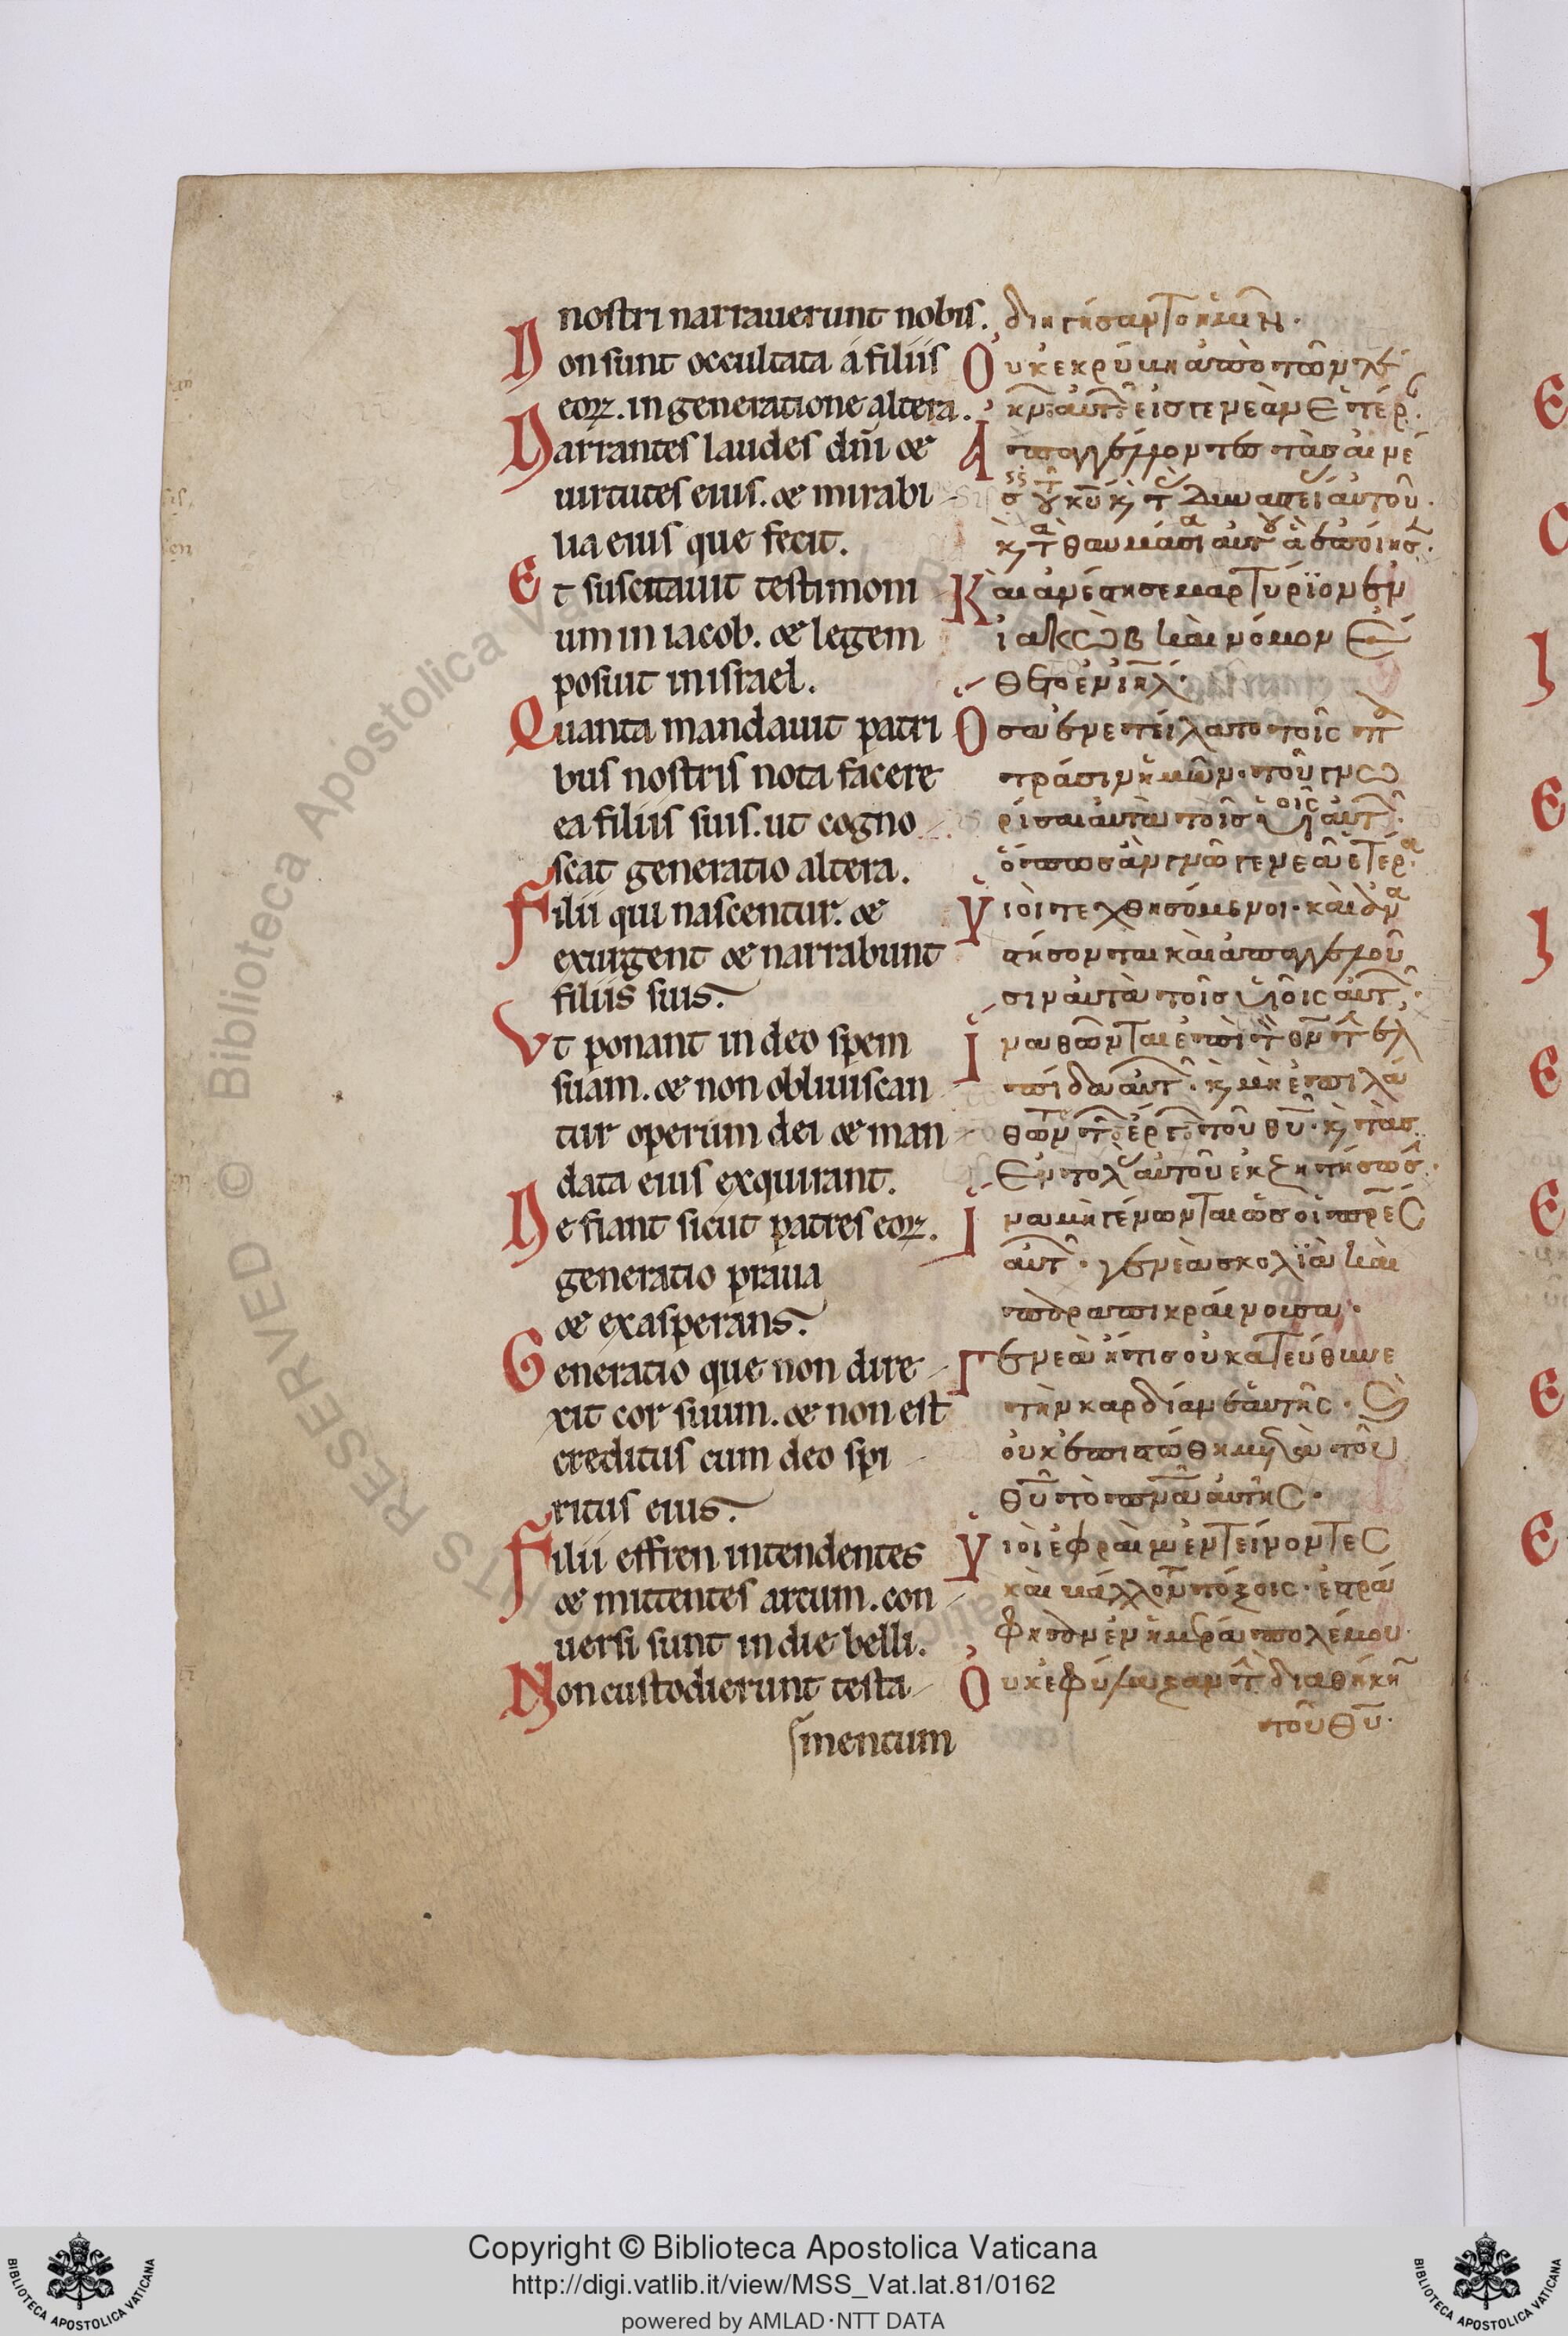 nostri narrauerunt nobis.
Non sunt occultata á filiis
eoꝝ. in generatione altera.
Narrantes laudes dn̄i &
uirtutes eius. & mirabi-
lia eius que fecit.
Et suscitauit testimoni
um in iacob. & legem
posuit in israel.
Quanta mandauit patri
bus nostris nota facere
ea filiis suis. ut cogno-
scat generatio altera.
Filii qui nascentur. &
exurgent & narrabunt
filiis suis.
Vt ponant in deo spem
suam. & non obliuiscan-
tur operum dei & man-
data eius exquirant.
Ne fiant sicut patres eoꝝ.
generatio praua
& exasperans.
Generatio que non dire-
xit cor suum. & non est
creditus cum deo spi-
ritus eius.
Filii effren intendentes
& mittentes arcum. con-
uersi sunt in die belli.
Non custodierunt testa-
mentum
Οὐκ ἐκρύβη ἀπὸ τῶν
εἰς γενεὰν ἑτέρ
Ἀπαγγέλλοντες τὰς αἰνέ
αὐτοῦ.
Καὶ ἀνέστησε μαρτύριον ἐν
ἰακὼβ καὶ νόμον ἔ
θετο ἐν ἰηλ.
Ὅσα ἐνετείλατο τοῖς π
τράσιν ἡμῶν. τοῦ γνω
ρίσαι αὐτὰ τοῖς
ὅπως ἂν γνῶ γενεὰ ἑτέρα
Υἱοὶ τεχθησόμενοι. καὶ ἀνα
στήσονται καὶ ἀπαγγελοῦ
σιν αὐτὰ τοῖς υἱοῖς αὐτ
Ἵνα θῶνται ἐπὶ τ θν τ ἐλ
πίδα αὐτ. κ μὴ ἐπιλά
τοῦ θυ. κ τὰς
ἐντολ αὐτοῦ ἐκζητήσωσ
Ἵνα μὴ γένωνται ὡς οἱ πρες
αὐτ. γενεὰ σκολιὰ καὶ
παραπικραίνουσα.
Γενεὰ ἥτις οὐ κατεύθυνε
τὴν καρδίαν ἑαυτῆς.
οὐκ ἐπιστώθη μετὰ τοῦ
θυ τὸ πνα αὐτῆς.
Υἱοὶ ἐφραὶμ ἐντείνοντες
καὶ βάλλον τόξοις. ἐστρά
φησαν ἐν ἡμέρα πολέμου
Οὐκ ἐφύλαξαν τ διαθήκη
τοῦ θυ.
Copyright © Biblioteca Apostolica Vaticana
http://digi.vatlib.it/view/MSS_Vat.lat.81/0162
powered by AMLAD·NTT DATA
BIBLIOTECA APOSTOLICA VATICANA
BIBLIOTECA APOSTOLICA VATICANA